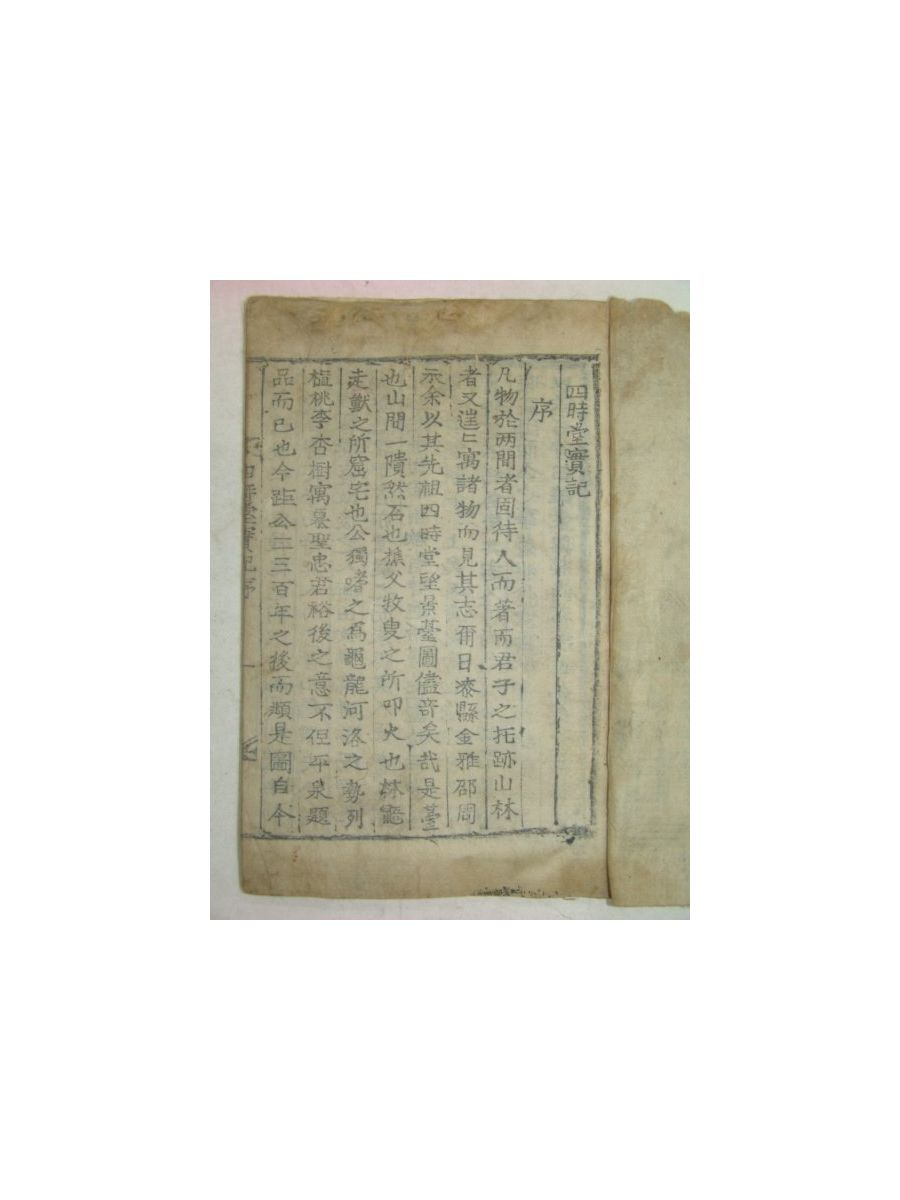 四時堂實記
序
凡物於兩間者固待人而著而君子之托跡山林
者又遑〻寓諸物而見其志爾日泰縣金雅邵周
示余以其先祖四時堂望景臺圖儘奇矣哉是臺
也山間一隤然石也樵父牧叟之所叩火也林鼯
走獸之所窟宅也公獨喏之爲龜龍河洛之勢列
植桃李杏樹寓慕聖忠君裕後之意不但平泉題
品而已也今距公二三百年之後而頼是圖自今
四時堂實記序 一